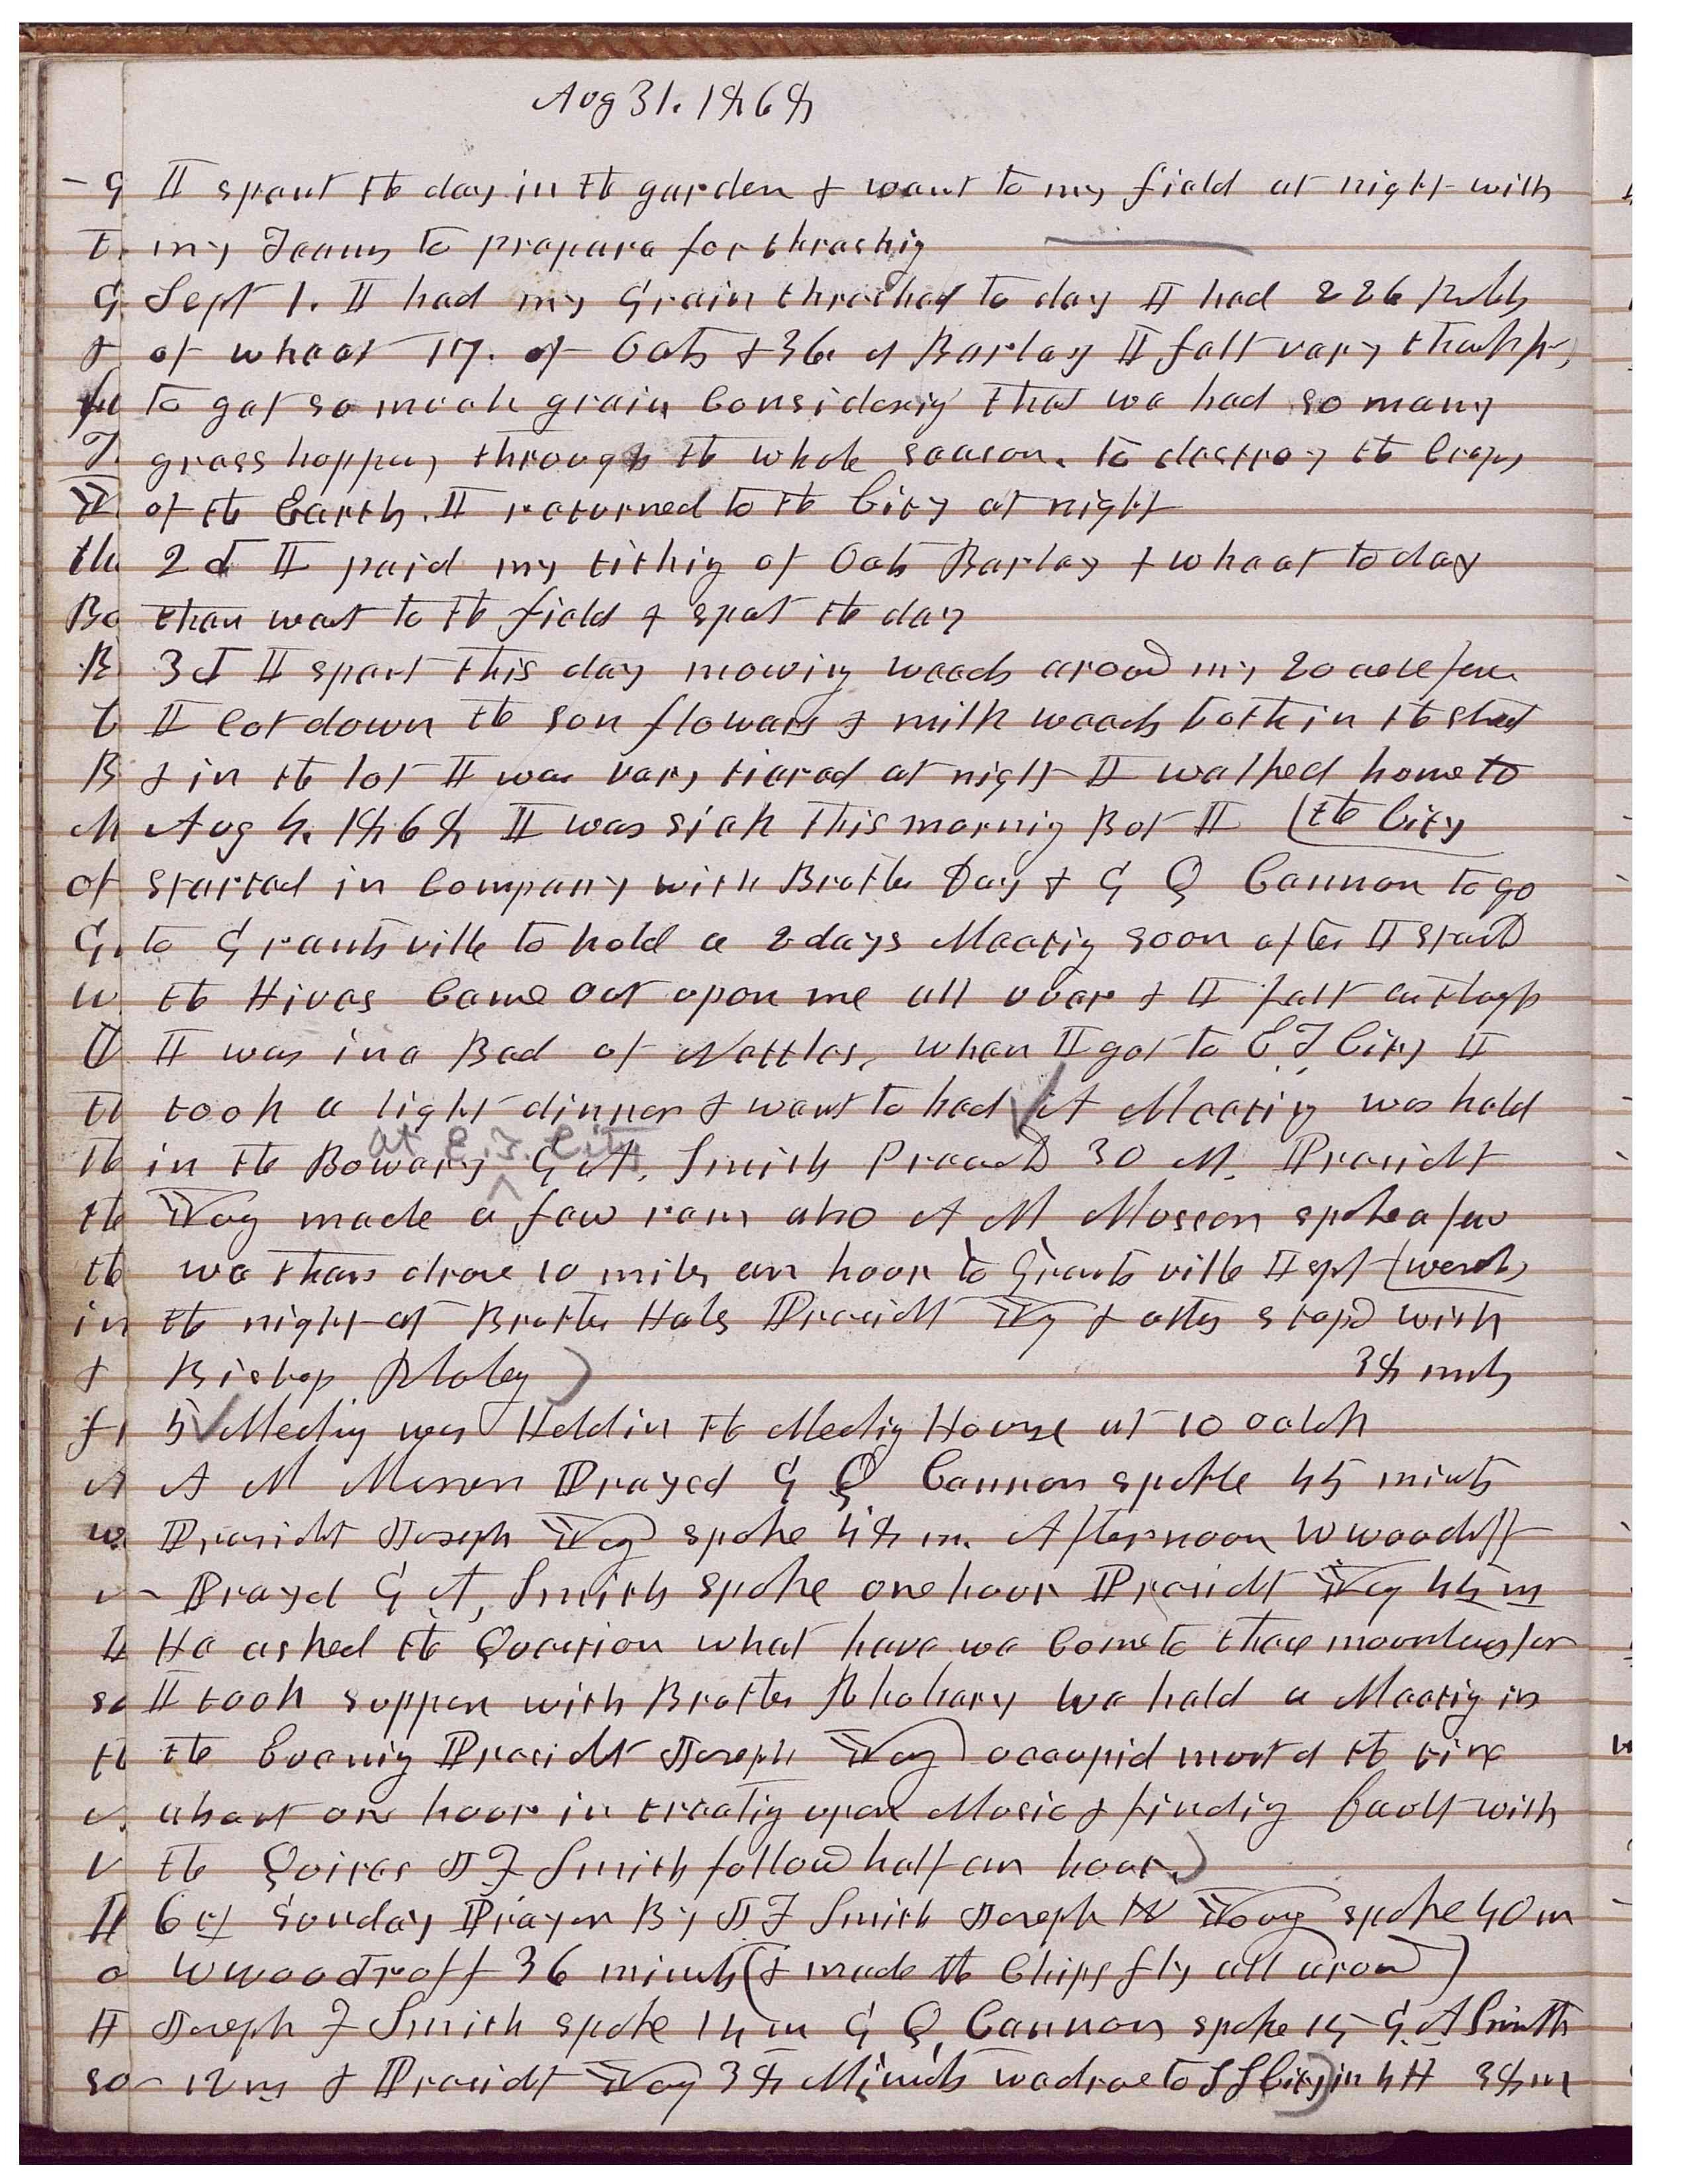 Aug 31. 1868
I spent the day in the garden & went to my field at night with
my Teams to prepare for thrashig
Sept 1. I had my Grain thrashed to day I had 226 bush
of wheat 17. of Oats & 36 of Barley I felt very thankful
to get so much grain Considerig that we had so many
grass hoppers through the whole season. to destroy the Crops
of the Earth. I returned to the City at night
2d I paid my tithig of Oats Barley & wheat to day
then went to the field & spet the day
3d I spent this day mowing weeds aroud my 20 acre
I Cut down the sun flowers & milk weeds both in the street
& in the lot I was very tiared at night I walked home to
Aug 4. 1868 I was sick this mornig But I (the City
started in Company with Brother Day & G Q Cannon to go
to Grantsville to hold a 2 days Meetig soon after I started
the Hives Came out upon me all over & I felt as though
I was in a Bed of Nettles, when I got to E T City I
took a light dinner & went to bed A Meetig was held
at E. T. City
in the Bowery G A. Smith Preached 30 M. Presidet
Yog made a few rem also A M Musser spoke a few
we then drove 10 miles an hour to Grantsville I spt (words
the night at Brother Hales Presidet Yg & others stoped with
Bishop Roley) 38 mls
5 Meetig was Held in the Meetig House at 10 oclok
A M Musser Prayed G Q Cannon spoke 45 minuts
Presidet Joseph Yog spoke 48 m. Afternoon W woodruff
Prayed G A, Smith spoke one hour Presidet Yog 45 m
He asked the Question what have we Come to these mountains for
I took supper with Brother We held a Meetig in
the Evenig Presidet Joseph Yog occupid most of the time
about one hour in treatig upon Music & findig fault with
the Quires J F Smith followed half an hour.)
6th Sunday Prayer By J F Smith Joseph Yog spoke 40 m
W Woodruff 36 minuts (& made the Chips fly all aroud)
Joseph F Smith spoke 14 m G Q Cannon spoke 15 G. A Smith
12 m & Presidet Yog 38 Minuts we drove to S L City) in 4 H 38 m